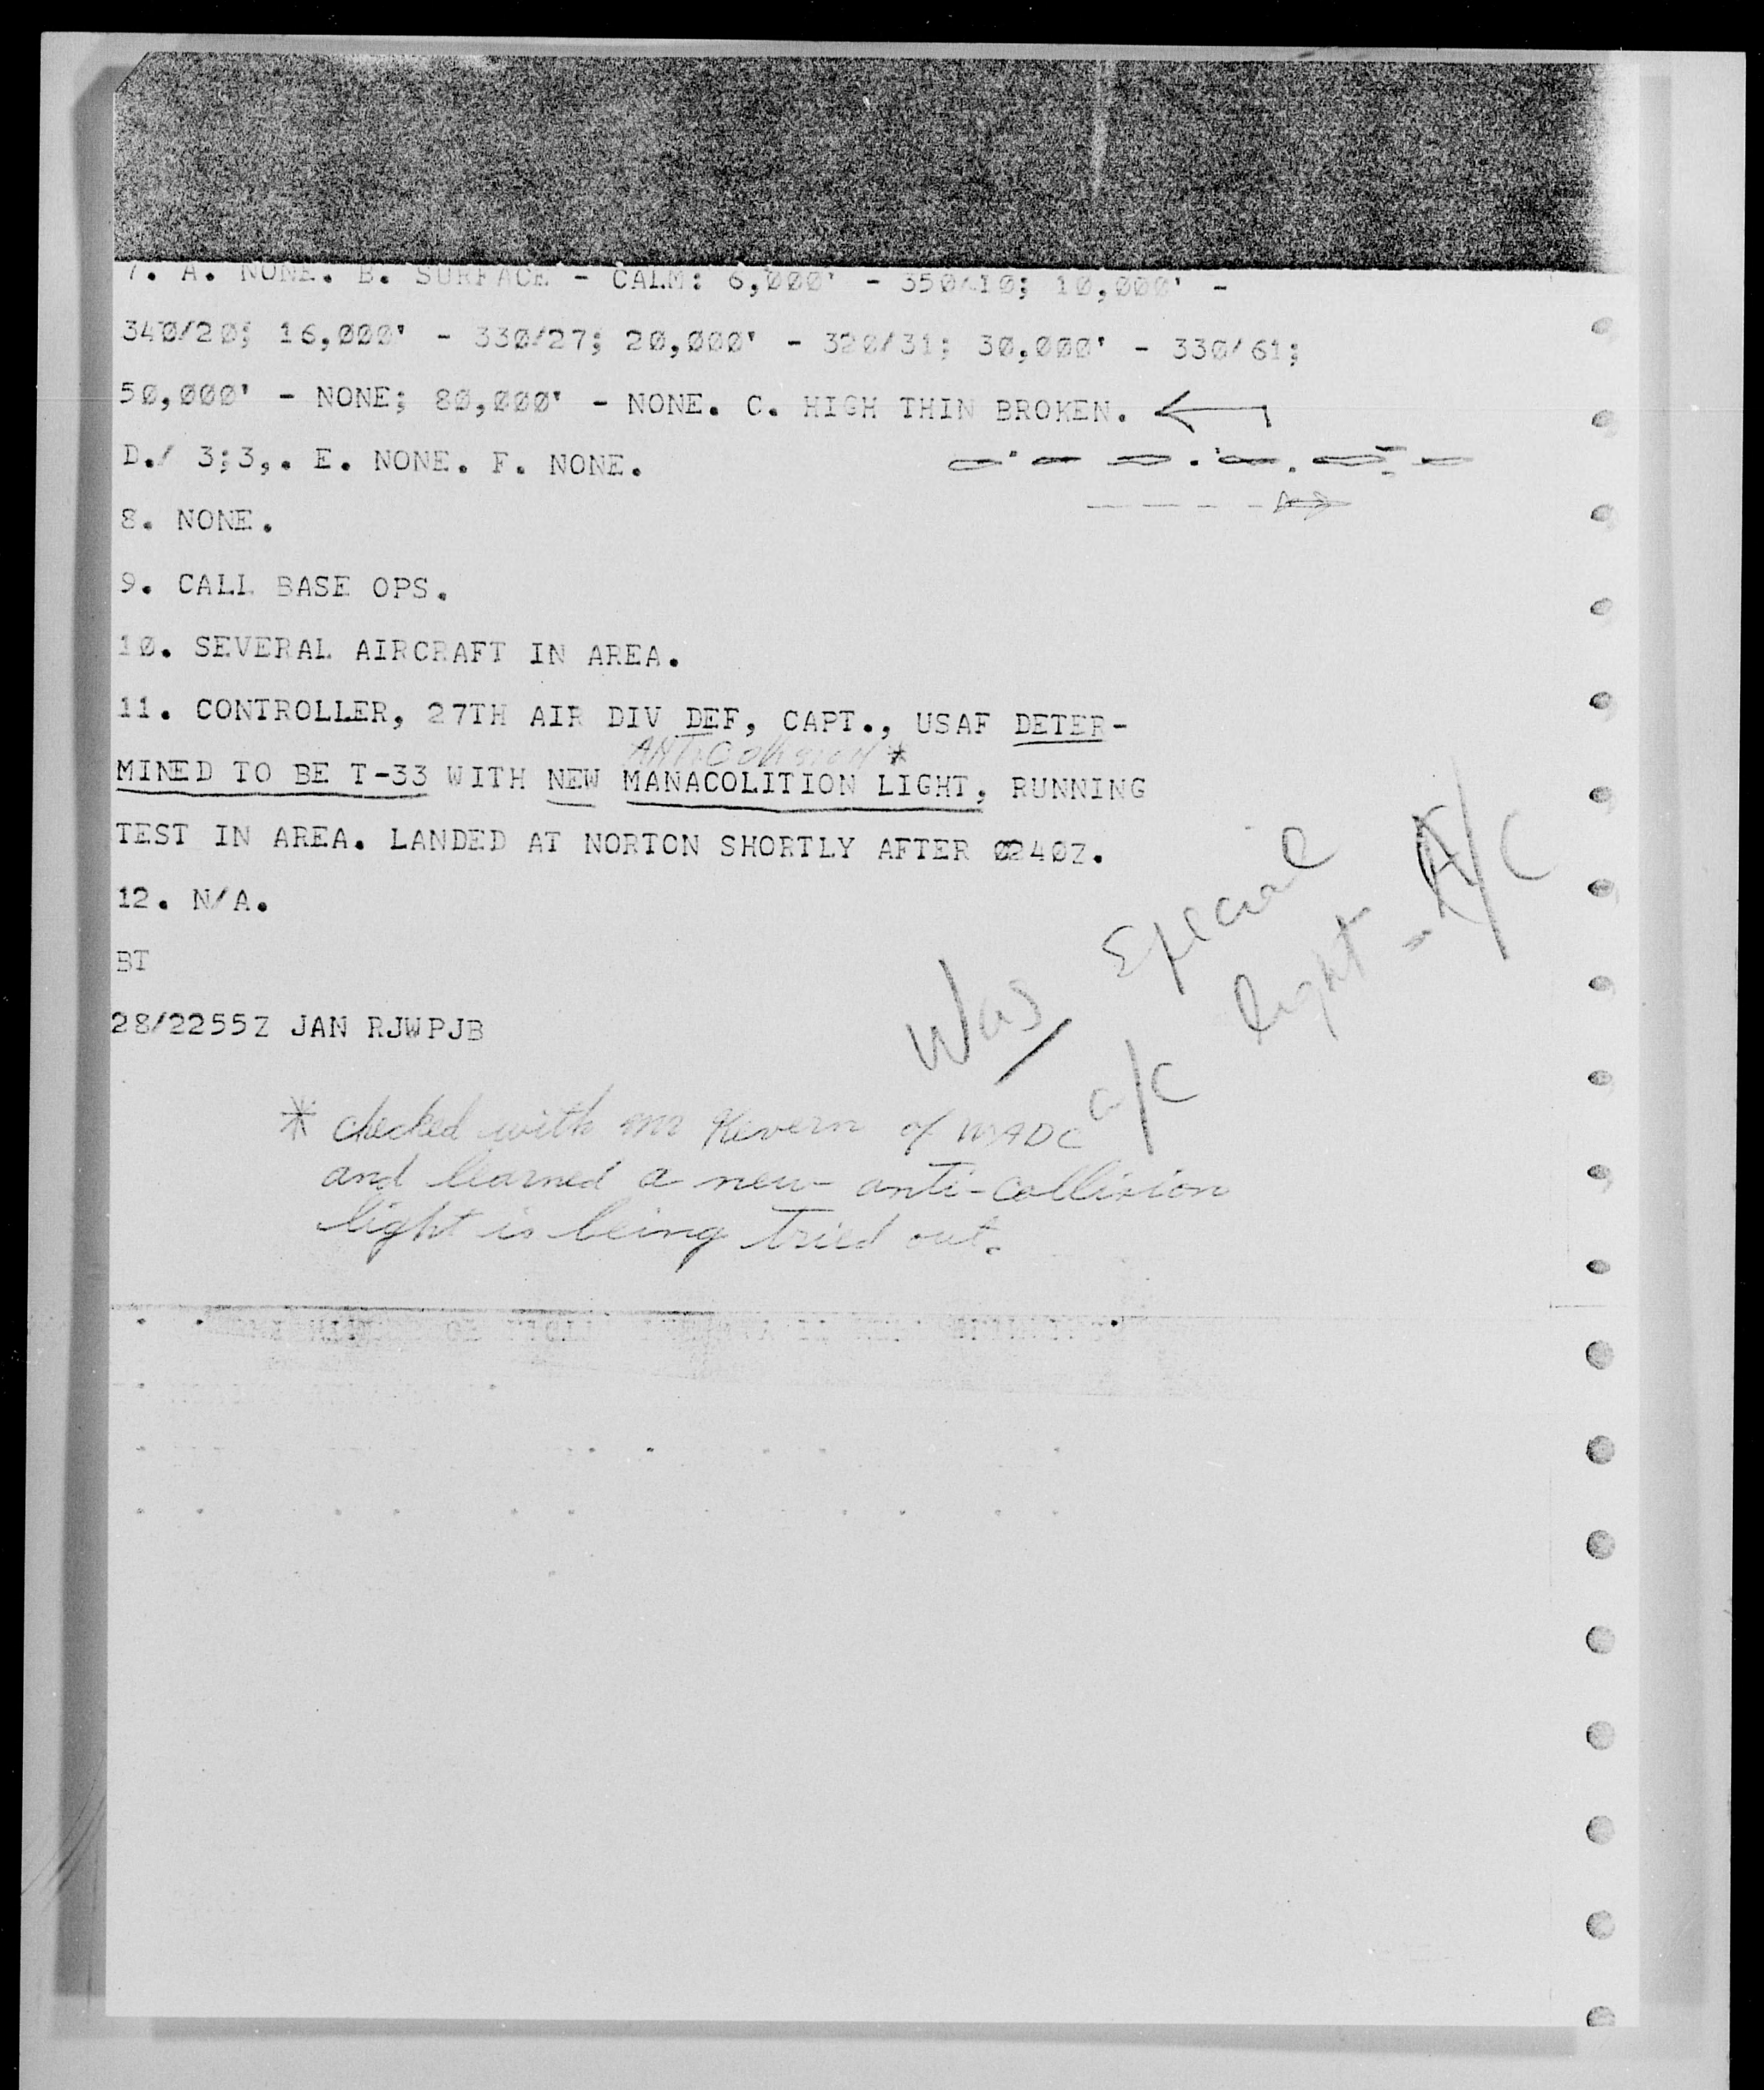 7. A. NONE. B. SURFACE - CALM: 6,000' - 350/10; 10,000' -
340/20; 16,000' - 330/27; 20,000' - 320/31; 30,000' - 330/61;
50,000' - NONE; 80,000' - NONE. C. HIGH THIN BROKEN.
D./ 3;3,. E. NONE. F. NONE.
8. NONE.
9. CALL BASE OPS.
10. SEVERAL AIRCRAFT IN AREA.
11. CONTROLLER, 27TH AIR DIV DEF, CAPT., USAF DETER-
ANTICOllision *
MINED TO BE T-33 WITH NEW MANACOLITION LIGHT, RUNNING
TEST IN AREA. LANDED AT NORTON SHORTLY AFTER 0240Z.
12. N/A.
BT
28/2255Z JAN RJWPJB
Was Special
a/c light - A/C
* checked with Mr Kevern of WADC
and learned a new anti-collision
light is being tried out.